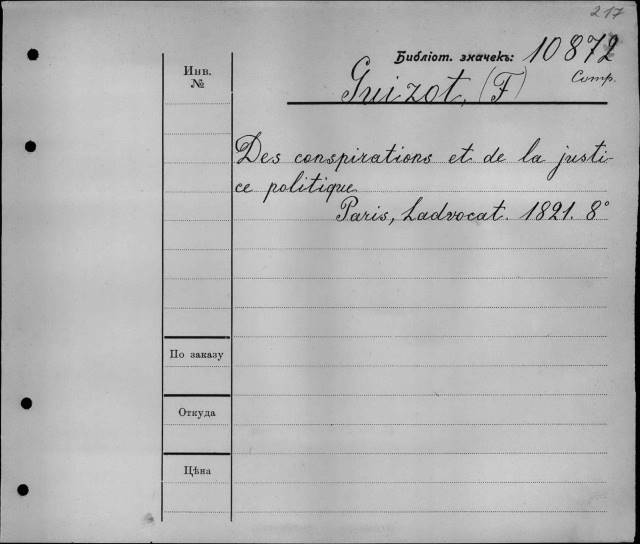 217
Библіот. значекъ: 10872
Comp.
Инв.
№
Guizot, (F)
Des conspirations et de la justi-
ce politique
Paris, Ladvocat. 1821. 8°
По заказу
Откуда
Цѣна